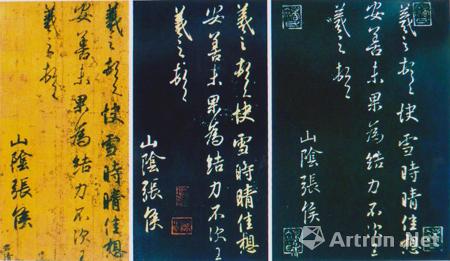 羲之頓首快雪時晴佳想
安善未果為結力不次王
羲之頓首
山陰張侯
羲之頓首快雪時晴佳想
安善未果為結力不次王
羲之頓首
山陰張侯
羲之頓首快雪時晴佳想
安善未果為結力不次王
羲之頓首
山陰張侯
Artron.Net